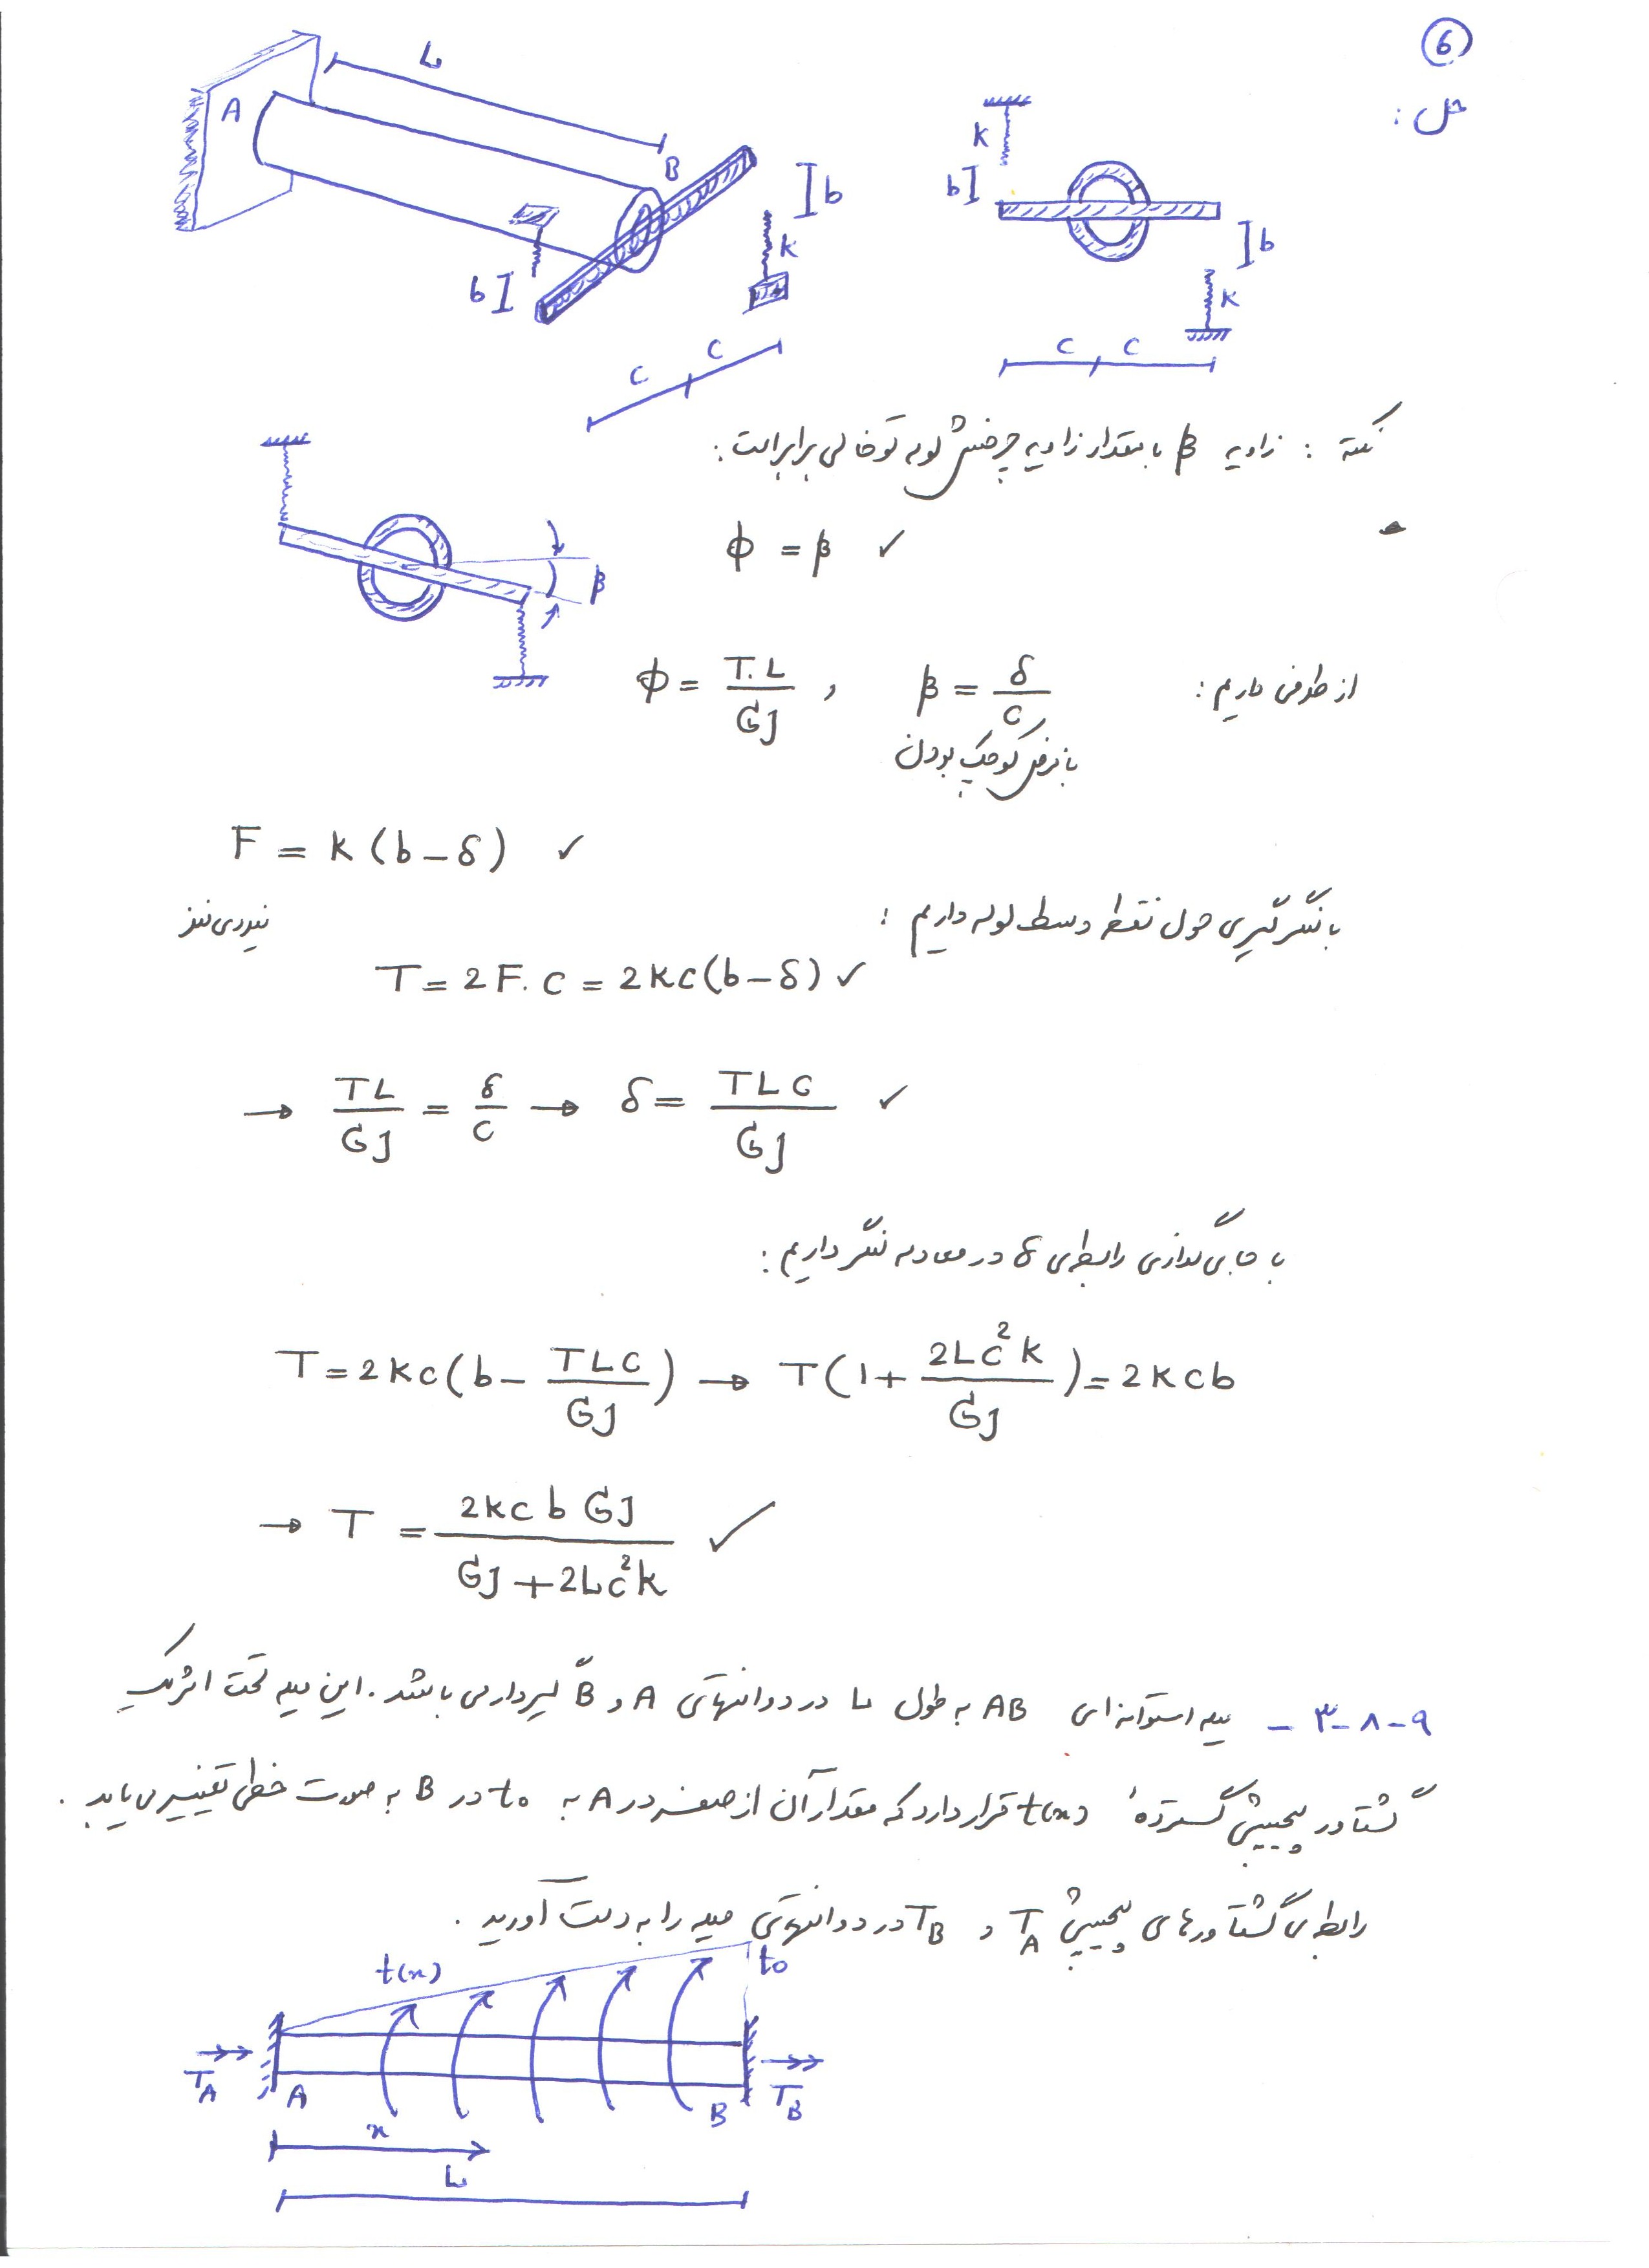 6
حل :
L
A
B
b
k
b
c
c
k
b
b
k
c
c
نکته : زاویه β با مقدار زاویه چرخش لوله توخالی برابر است :
φ = β ✓
β
از طرفی داریم : β = δ/c , φ = T.L/GJ
با فرض کوچک بودن
F = k (b-δ) ✓
نیروی فنر
با لنگرگیری حول نقطه وسط لوله داریم :
T = 2F.c = 2kc(b-δ) ✓
→ TL/GJ = δ/c → δ = TLC/GJ ✓
با جایگذاری رابطه‌ی δ در معادله لنگر داریم :
T = 2kc(b - TLC/GJ) → T(1 + 2Lc²k/GJ) = 2kcb
→ T = 2kcb GJ / GJ + 2Lc²k ✓
۳-۸-۹ - میله استوانه‌ای AB به طول L در دو انتهای A و B گیردار می باشد. این میله تحت اثر یک
گشتاور پیچشی گسترده t(x) قرار دارد که مقدار آن از صفر در A به t₀ در B به صورت خطی تغییر می یابد.
رابطه‌ی گشتاورهای پیچشی T_A و T_B در دو انتهای میله را به دست آورید.
t(x)
t₀
T_A
A
B
T_B
x
L